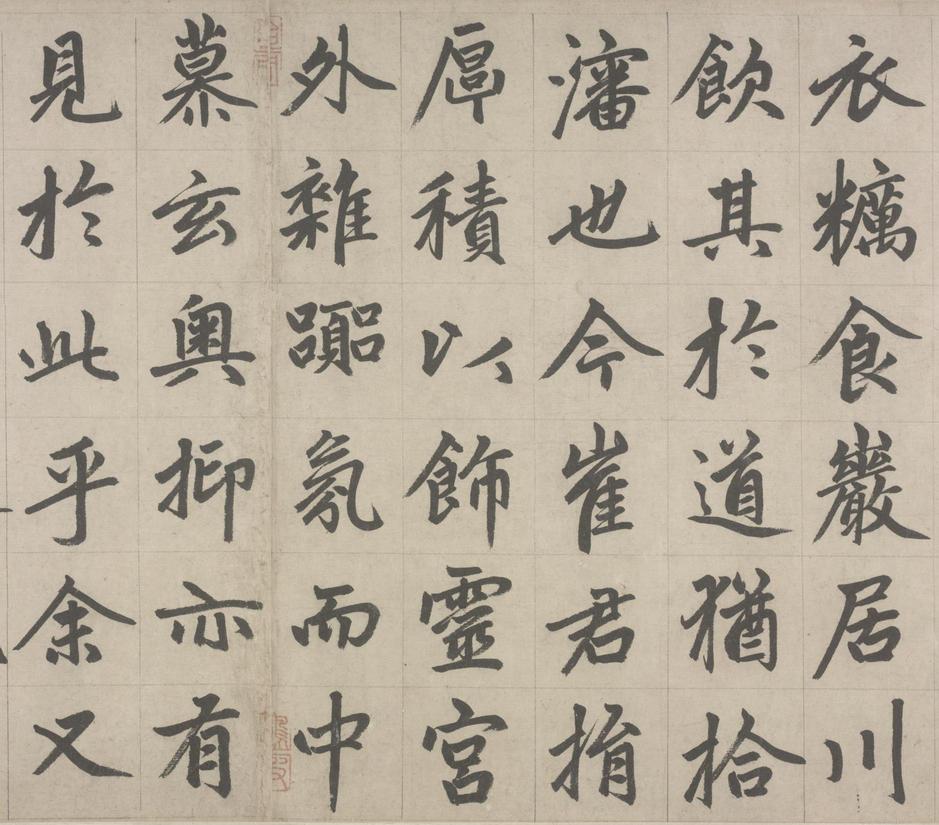 衣糲食巖居川
飲其於道猶拾
瀋也今崔君捐
厚積以飾靈宮
外雜囂氛而中
慕玄奥抑亦有
見於此乎余又